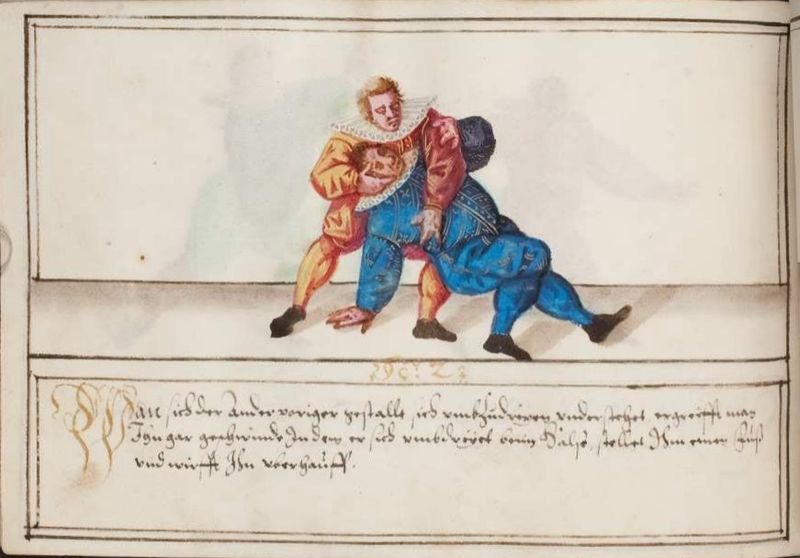 No: 2:
Wan sich der Ander voriger gestallt sich vmbzudreÿen vnderstehet ergreifft man
Ihn gar geschwinde Indem er sich vmbdreÿet beim Halse, stellet Ihm einen fuß
vnd wirfft Ihn vberhauff.